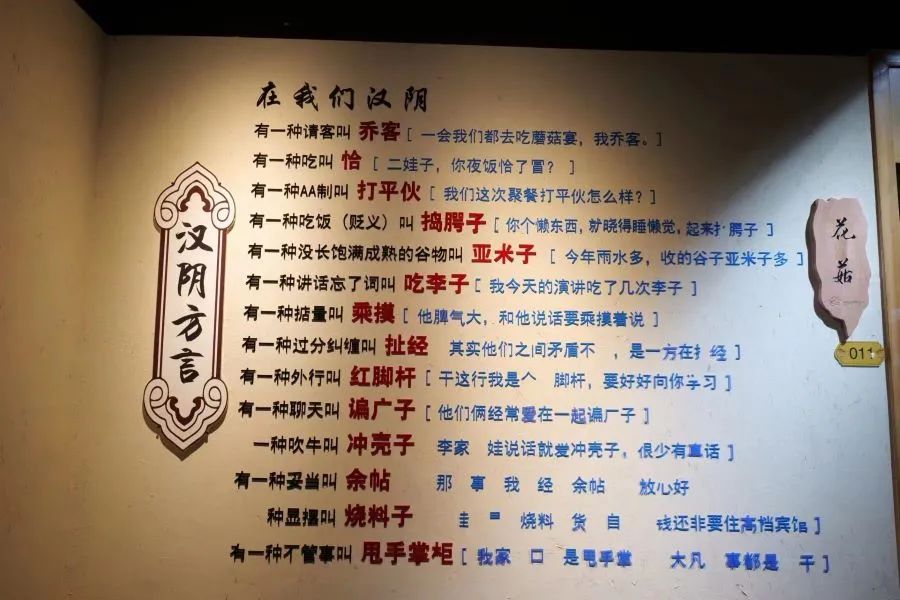 在我们汉阴
有一种请客叫 乔客 [ 一会我们都去吃蘑菇宴，我乔客。]
有一种吃叫 恰 [ 二娃子，你夜饭恰了冒？ ]
有一种AA制叫 打平伙 [ 我们这次聚餐打平伙怎么样？]
有一种吃饭（贬义）叫 捣腭子 [ 你个懒东西，就晓得睡懒觉，起来 腭子 ]
有一种没长饱满成熟的谷物叫 亚米子 [ 今年雨水多，收的谷子亚米子多 ]
有一种讲话忘了词叫 吃李子 [ 我今天的演讲吃了几次李子 ]
有一种掂量叫 乘摸 [ 他脾气大，和他说话要乘摸着说 ]
有一种过分纠缠叫 扯经 其实他们之间矛盾不 ，是一方在 经 ]
有一种外行叫 红脚杆 [ 干这行我是 脚杆，要好好向你学习 ]
有一种聊天叫 谝广子 [ 他们俩经常爱在一起谝广子 ]
一种吹牛叫 冲壳子 李家 娃说话就爱冲壳子，很少有真话 ]
有一种妥当叫 余帖 那 事 我 经 余帖 放心好
种显摆叫 烧料子 烧料 货 自 钱还非要住高档宾馆 ]
有一种不管事叫 甩手掌柜 [ 我家 口 是甩手掌 大凡 事都是 干 ]
汉阴方言
花菇
011